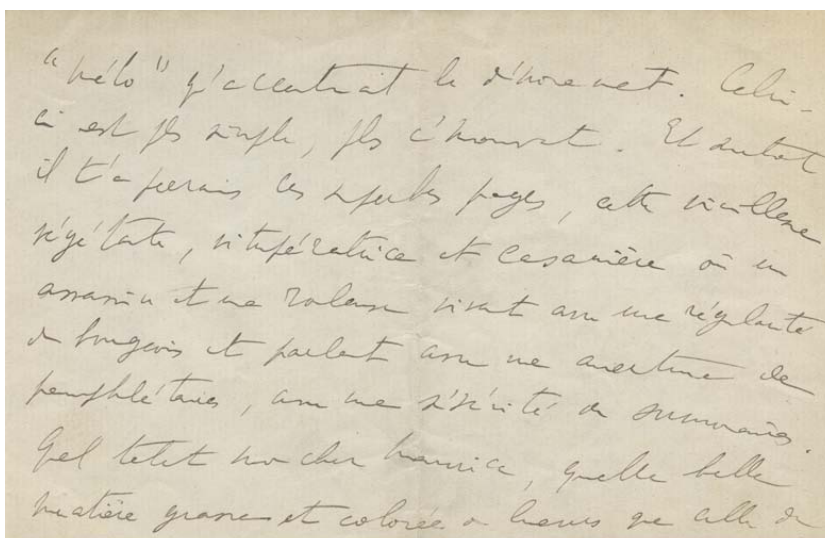 "mélo" qu'accentuait le dénouement. Celui-
ci est plus simple, plus émouvant. Et surtout
il t'a permis ces superbes pages, cette vieillesse
végétante, vitupératrice et casanière où un
assassin et une voleuse vivent avec une régularité
de bourgeois et parlent avec une amertume de
pamphlétaires, avec une sévérité de
Quel talent mon cher Maurice, quelle belle
matière grasse et colorée que celle de